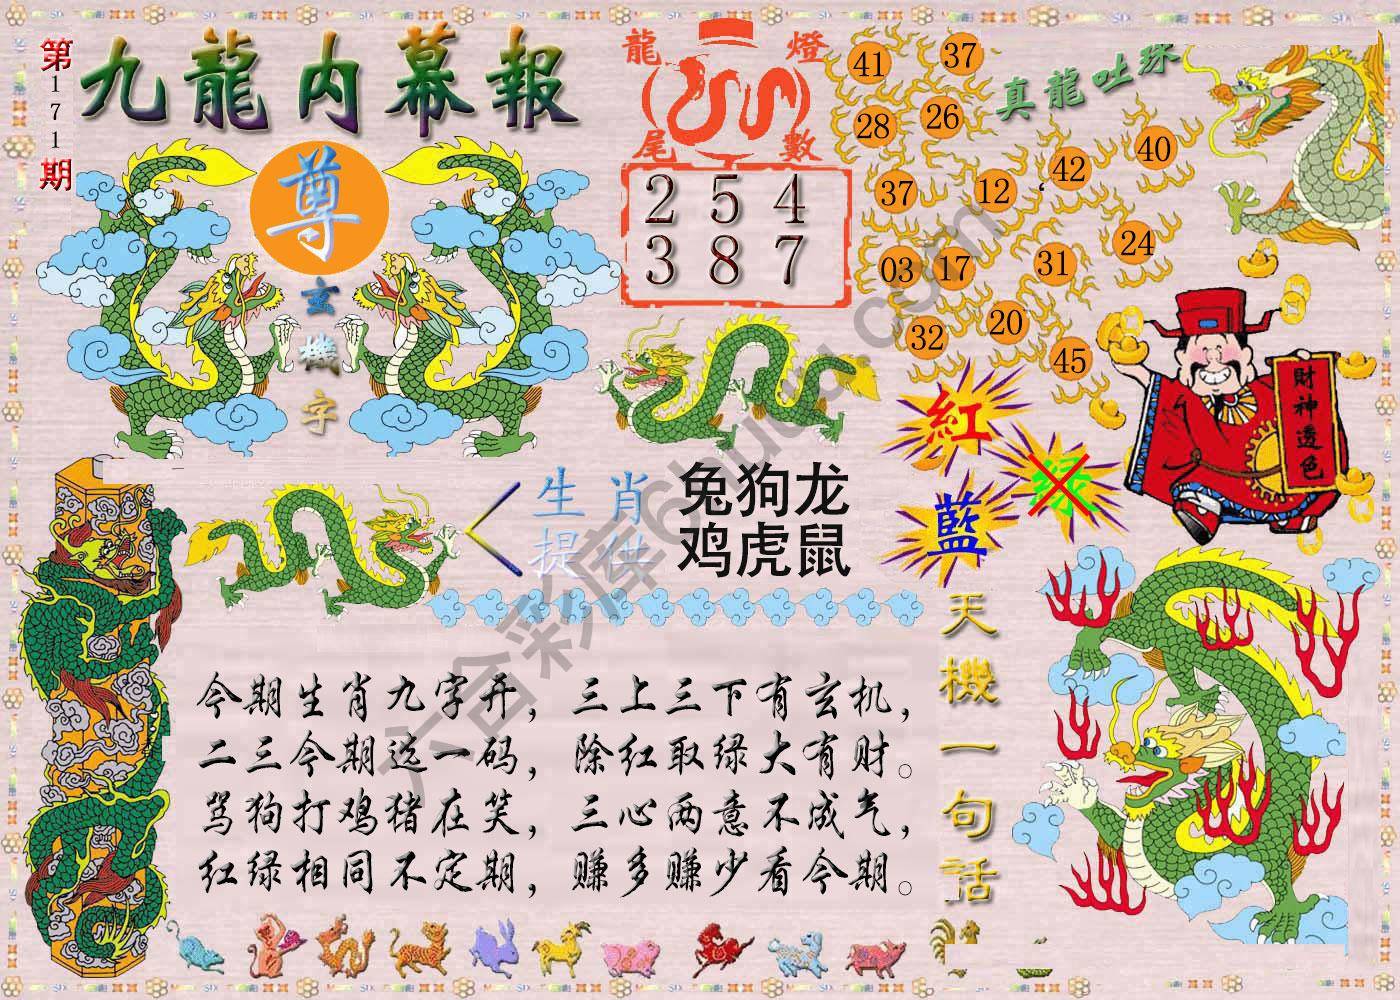 第171期
九龍内幕報
尊
玄機字
龍燈
尾數
2 5 4
3 8 7
41 37
28 26
37 12 42 40
03 17 31 24
32 20 45
真龍吐珠
財神透色
紅
绿
藍
生肖 兔狗龙
提供 鸡虎鼠
天機一句話
今期生肖九字开，三上三下有玄机，
二三今期送一码，除红取绿大有财。
骂狗打鸡猪在笑，三心两意不成气，
红绿相同不定期，赚多赚少看今期。